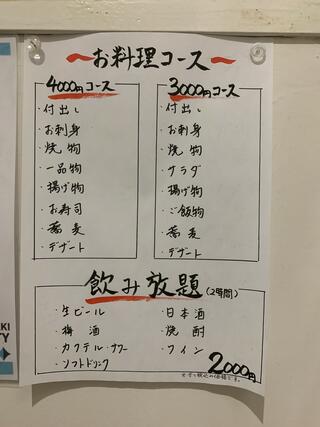 〜お料理コース〜
4000円コース
・付出し
・お刺身
・焼物
・一品物
・揚げ物
・お寿司
・蕎麦
・デザート
3000円コース
・付出し
・お刺身
・焼物
・サラダ
・揚げ物
・ご飯物
・蕎麦
・デザート
飲み放題(2時間)
・生ビール
・梅酒
・カクテル・サワー
・ソフトドリンク
・日本酒
・焼酎
・ワイン
2000円